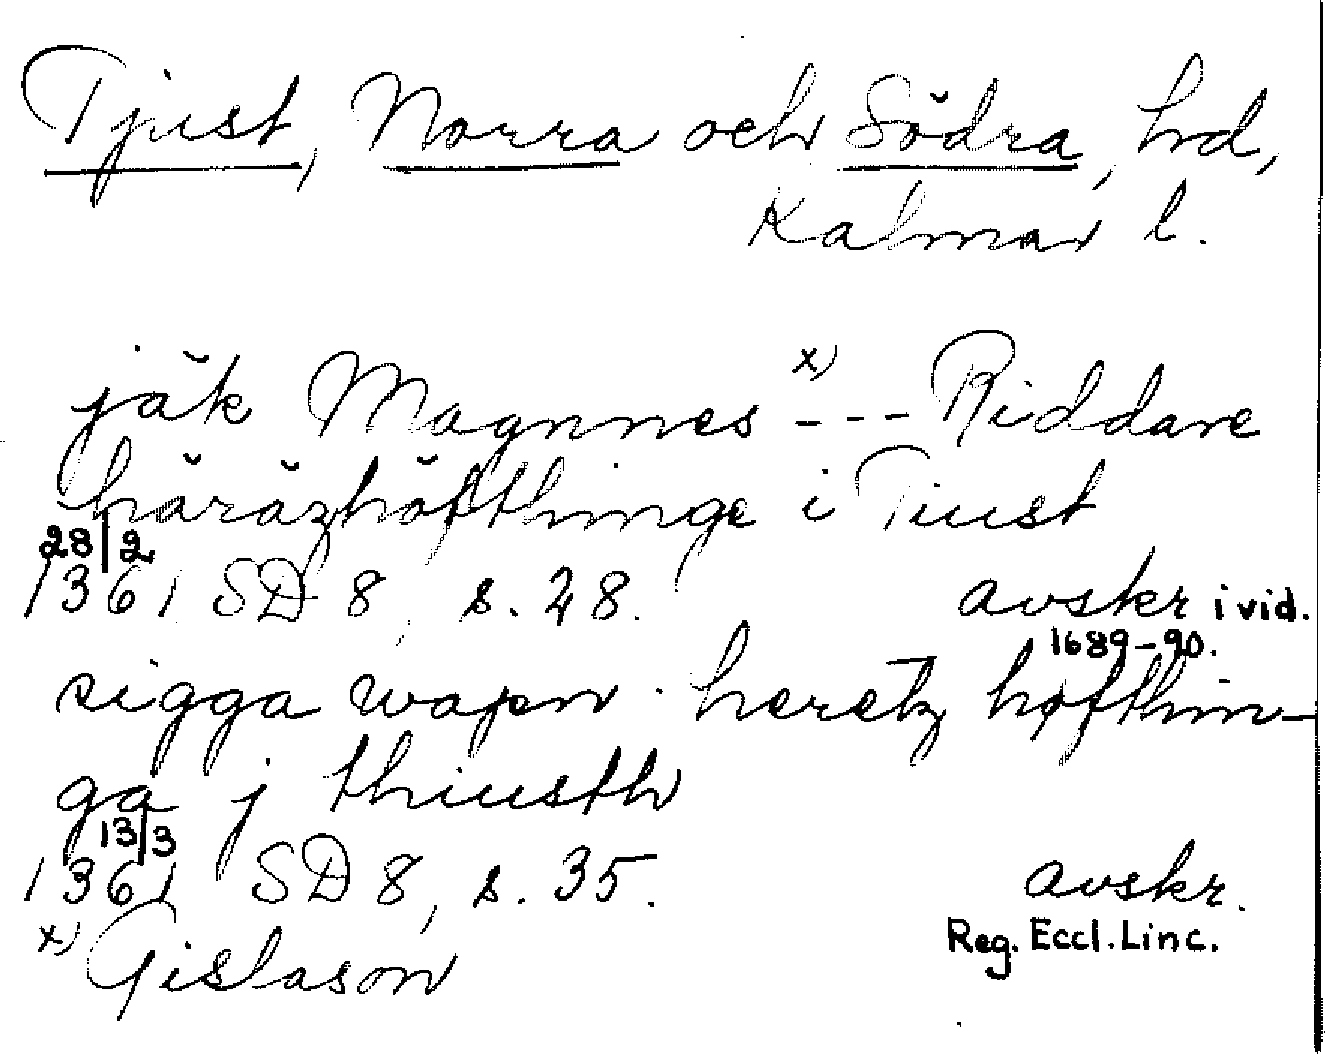 Tjust, Norra och Södra, hd,
Kalmar l.
jäk Magnnes x) --- Riddare
häräzhöfthinge i Tiust
28/2
1361 SD 8, s. 28. avskr i vid.
1689-90.
sigga wapn. heretz høfthin-
ga j thiusth
13/3
1361 SD 8, s. 35. avskr.
x) Gislason Reg. Eccl. Linc.